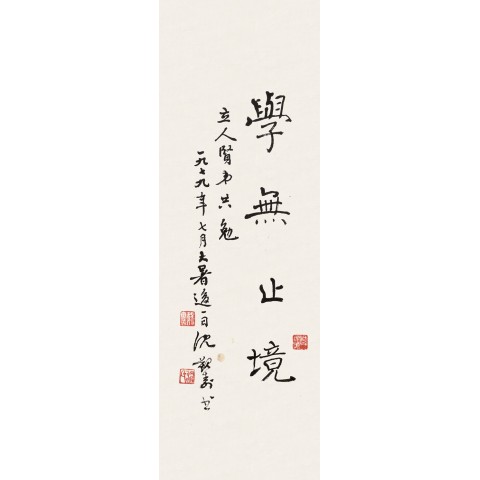 學無止境
立人賢弟共勉
一九七九年七月大暑後一日沈